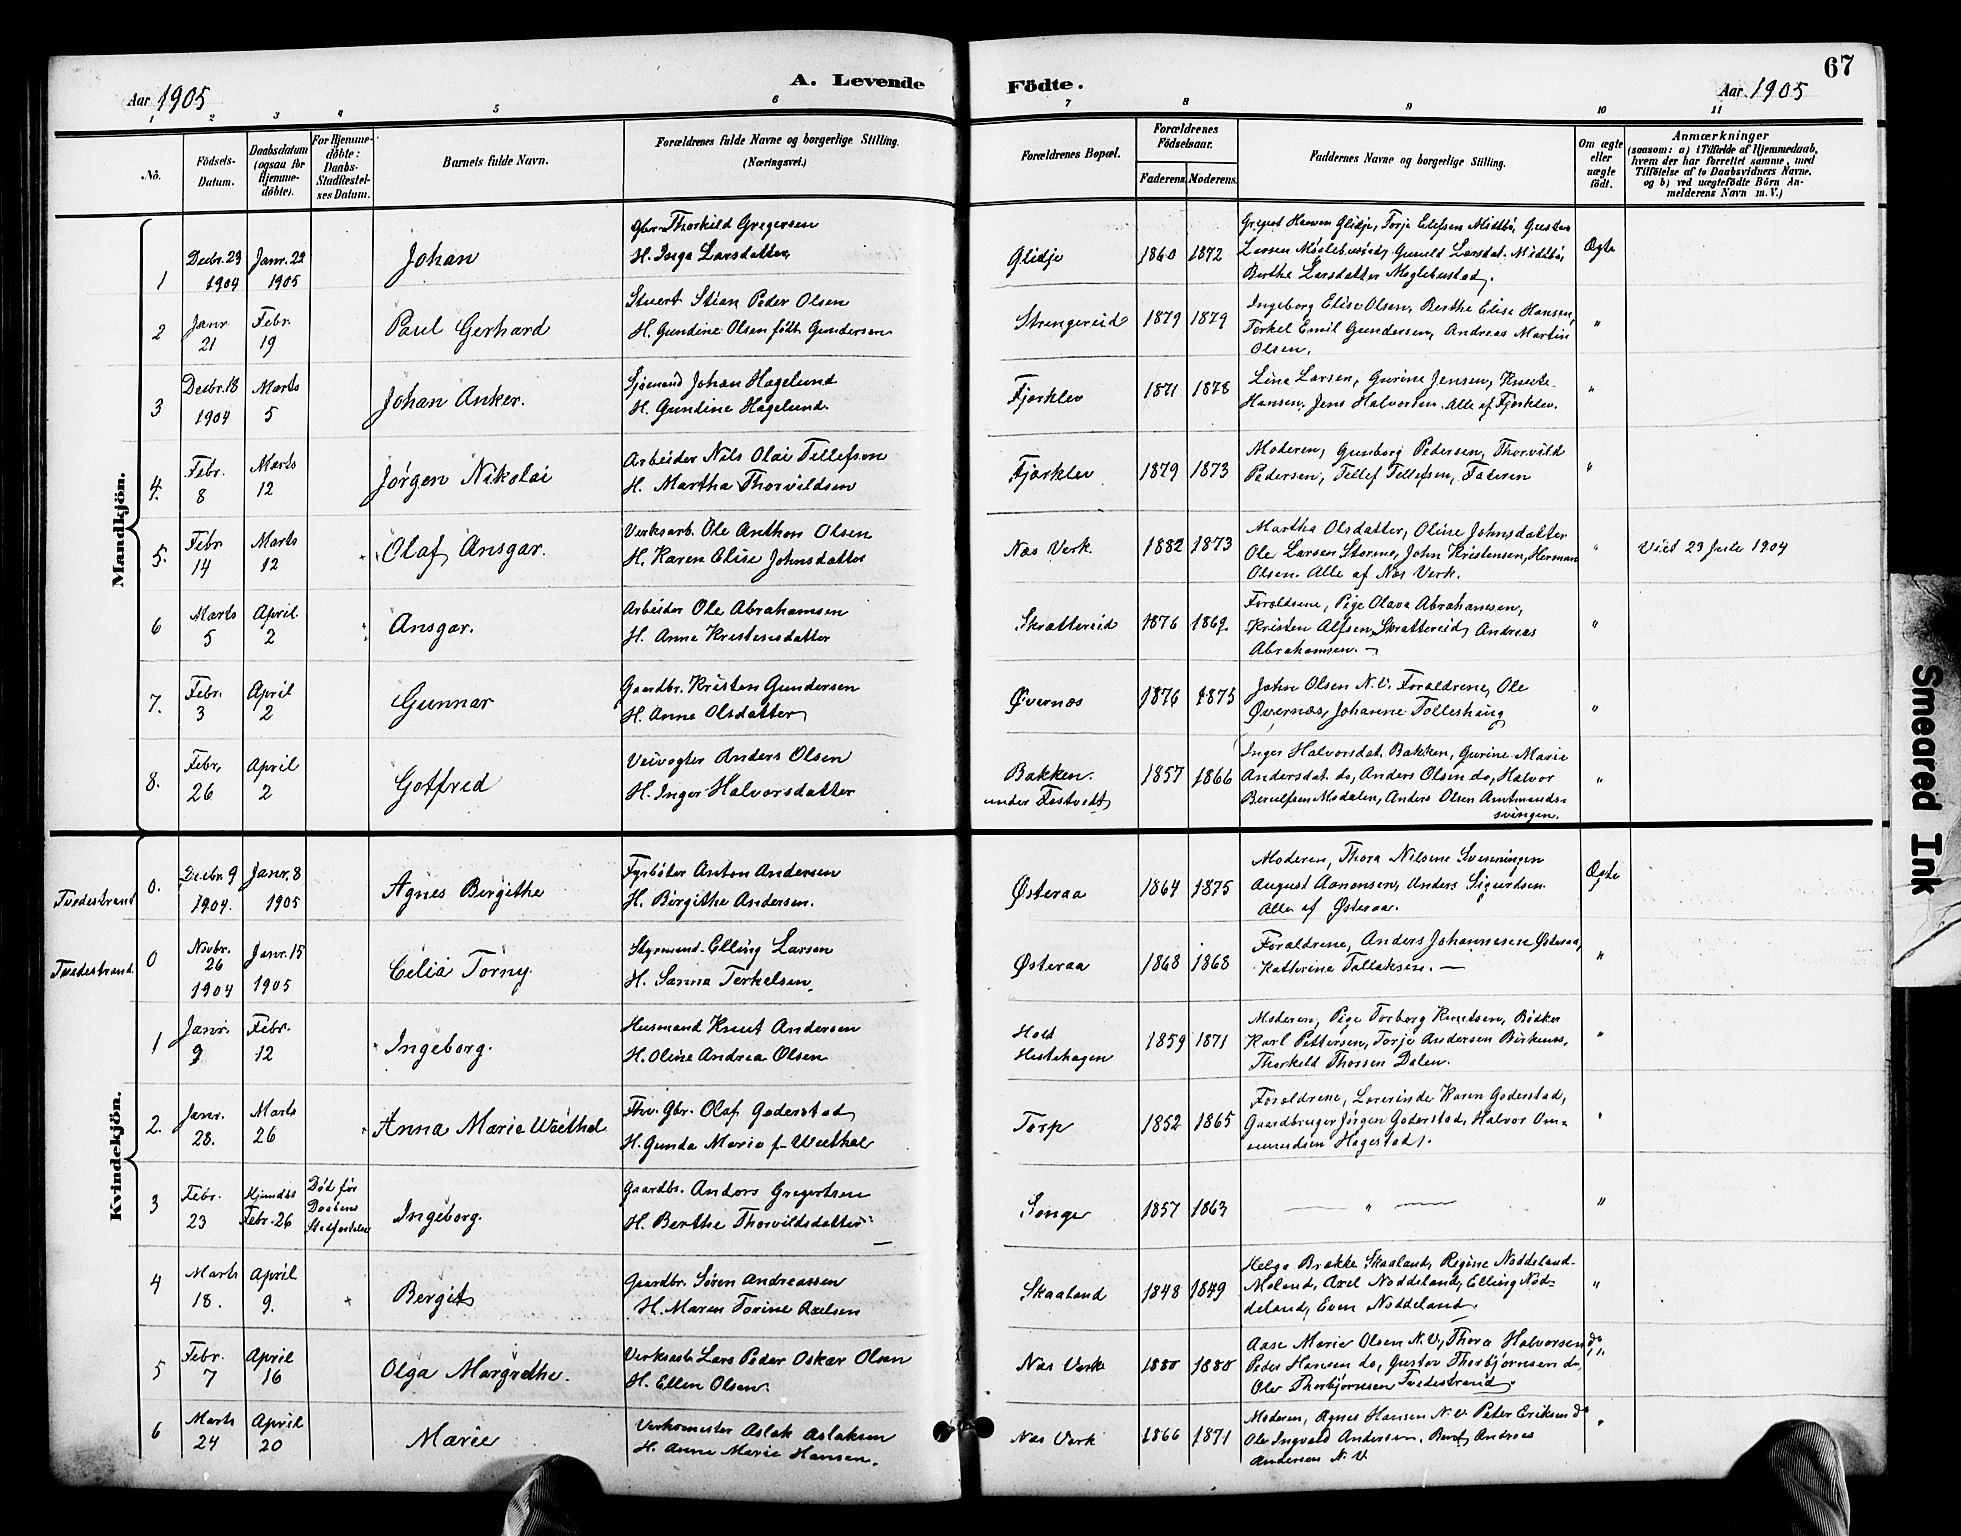 67
A. Levende Födte.
Aar 1905
Aar 1905
1 2 3 4 5 6 7 8 9 10 11
No.
Födsels-Datum.
Daabsdatum (ogsaa for Hjemme-döbte).
For Hjemme-döbte: Daabs-Stadfæstel-ses Datum.
Barnets fulde Navn.
Forældrenes fulde Navne og borgerlige Stilling. (Næringsvei.)
Forældrenes Bopæl.
Forældrenes Födselsaar.
Faderens. Moderens.
Faddernes Navne og borgerlige Stilling.
Om ægte eller uægte födt.
Anmærkninger
(saasom: a) i Tilfælde af Hjemmedaab, hvem der har forrettet samme, med Tilföielse af to Daabsvidners Navne, og b) ved uægtefödte Börn An-melderens Navn m. V.)
Mandkjön.
1 Decbr. 23 1904 Janr. 22 1905 Johan
Gbr. Thorkild Gregersen
H. Inga Larsdatter
Glidje 1860 1872
Larsen Møglebustad, Gunild Larsdat. Midtbø,
Berthe Larsdatter Møglebustad.
Ægte
2 Janr 21 Febr. 19 Paul Gerhard
Stuert Stian Peder Olsen
H. Gundine Olsen født Gundersen
Strengereid 1879 1879
Ingeborg Elise Olsen, Berthe Elise Hansen,
Torkel Emil Gundersen, Andreas Martin
Olsen. "
3 Decbr. 18 1904 Marts 5 Johan Anker.
Sjømand Johan Hagelund
H. Gundine Hagelund.
Fjærklev 1871 1878
Lina Larsen, Gurine Jensen, Knute
Hansen, Jens Halvorsen. Alle af Fjærklev. "
4. Febr. 8 Marts 12 Jørgen Nikolai
Arbeider Nils Olai Tellefsen
H. Martha Thorvildsen
Fjærklev 1879 1873
Moderen, Gunborg Pedersen, Thorvild
Pedersen, Tellef Tellefsen, Faderen "
5. Febr 14 Marts 12 Olaf Ansgar.
Verksarb. Ole Anthon Olsen
H. Karen Elise Johnsdatter
Næs Verk. 1882 1873
Martha Olsdatter, Oline Johnsdatter
Ole Larsen Storme, John Kristensen, Herman
Olsen. Alle af Næs Verk. "
Viet 23 Juli 1904
6 Marts 5 April 2 Ansgar.
Arbeider Ole Abrahamsen
H. Anne Kristensdatter
Skrattereid 1876 1869.
Forældrene, Pige Olava Abrahamsen,
Kristen Alfsen Skrattereid, Andreas
Abrahamsen. — "
7. Febr. 3 April 2 Gunnar
Gaardbr. Kristen Gundersen
H. Anne Olsdatter
Øvernæs 1876 1875
John Olsen N.V. Forældrene, Ole
Øvernæs, Johanne "
8. Febr. 26 April 2 Gotfred
Veivogter Anders Olsen
H. Inger Halvorsdatter
Bakken. under Fostvedt 1857 1866
Inger Halvorsdat. Bakken, Gurine Marie
Andersdat. do, Anders Olsen do, Halvor
Berulfsen Modalen, Anders Olsen Amtmands-
svingen. "
Kvindekjön.
Tvedestrand 0. Decbr. 9 1904. Janr. 8 1905 Agnes Bergithe
Fyrbøter Anton Andersen
H. Birgithe Andersen.
Østeraa 1864 1875
Moderen, Thora Nilsine
August Aanonsen, Anders Sigurdsen
Alle af Østeraa.
Ægte
Tvedestrand. 0 Novbr. 26 1904 Janr. 15 1905 Celia Torny
Styrmand. Elling Larsen
H. Sanna Terkelsen.
Østeraa 1868 1868
Forældrene, Anders Johannesen Østeraa,
Katherine Tallaksen. — "
1 Janr. 9 Febr. 12 Ingeborg.
Husmand Knut Andersen
H. Oline Andrea Olsen
Holt Hestehagen 1859 1871
Moderen, Pige Torborg Knudsen, Bødker
Karl Pettersen, Torje Andersen Birkenes,
Thorkeld Thorsen Dalen. "
2. Janr. 28. Marts 26 Anna Marie Weethal
Fhv. Gbr. Olaf Goderstad
H. Gunda Marie f. Weethal
Torp 1852 1865
Forældrene, Lærerinde Karen Goderstad,
Gaardbruger Jørgen Goderstad, Halvor Om-
mundsen Hagestad. "
3 Febr. 23 Febr. 26 Død før Daabens Ingeborg.
Gaardbr. Anders Gregertsen
H. Berthe Thorvildsdatter
Songe 1857 1863
— " — "
4 Marts 18. April 9. Bergit
Gaardbr. Søren Andreassen
H. Maren Torine Axelsen
Skaaland 1848 1849
Helga Brække Skaaland, Regine Noddeland
Moland, Axel Noddeland, Elling Nod-
deland, Even Noddeland. "
5 Febr. 7 April 16 Olga Margrethe.
Verksarb Lars Peder Oskar Olsen
H. Ellen Olsen.
Næs Verk 1880 1880
Aase Marie Olsen N.V., Thora Halvorsen do
Peder Hansen do, Gustav Thorbjørnsen do,
Ole Thorbjørnsen Tvedestrand. "
6 Marts 24 April 20 Marie
Verksmester Aslak Aslaksen
H. Anne Marie Hansen.
Næs Verk 1866 1871
Moderen, Agnes Hansen N.V. Peter Eriksen do
Ole Ingvald Andersen, Andreas
Andersen N.V. "
Smeared Ink